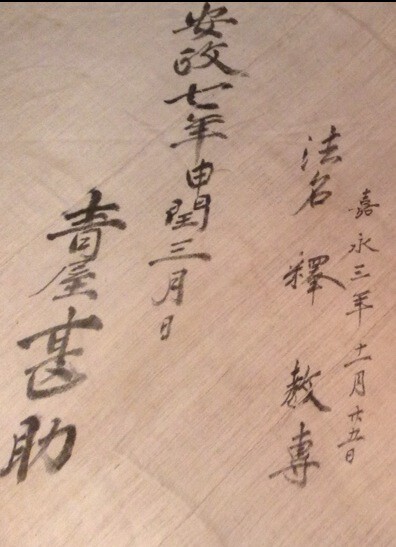 嘉永三年十一月 日
法名 釋 敎專
安政七年申閏三月日
屋甚助